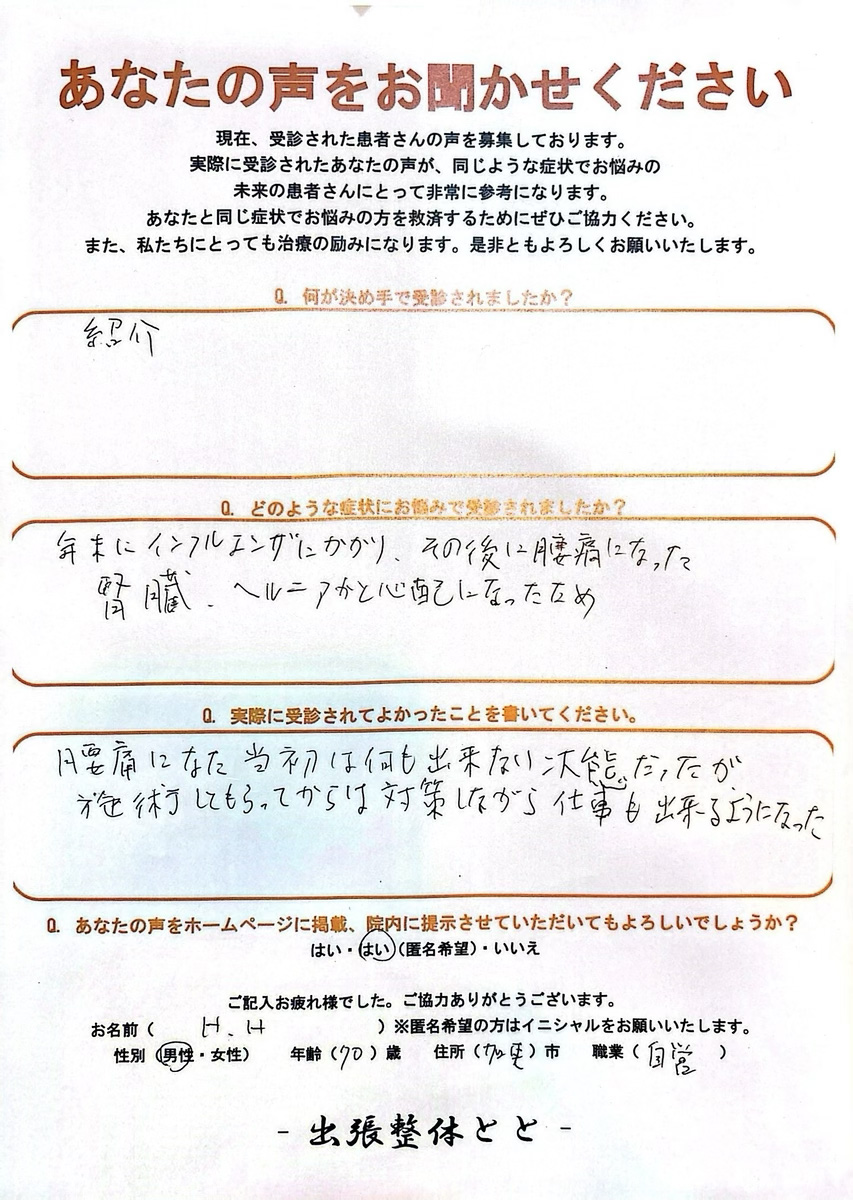 あなたの声をお聞かせください
現在、受診された患者さんの声を募集しております。
実際に受診されたあなたの声が、同じような症状でお悩みの
未来の患者さんにとって非常に参考になります。
あなたと同じ症状でお悩みの方を救済するためにぜひご協力ください。
また、私たちにとっても治療の励みになります。是非ともよろしくお願いいたします。
Q. 何が決め手で受診されましたか？
紹介
Q. どのような症状にお悩みで受診されましたか？
年末にインフルエンザにかかり、その後に腰痛になった
腎臓、ヘルニアかと心配になったため
Q. 実際に受診されてよかったことを書いてください。
腰痛になた当初は何も出来ない状態だったが
施術してもらってからは対策しながら仕事も出来るようになった
Q. あなたの声をホームページに掲載、院内に提示させていただいてもよろしいでしょうか？
はい・はい（匿名希望）・いいえ
ご記入お疲れ様でした。ご協力ありがとうございます。
お名前（ H.H ）※匿名希望の方はイニシャルをお願いいたします。
性別（男性・女性） 年齢（70）歳 住所（加西）市 職業（自営）
- 出張整体とと -